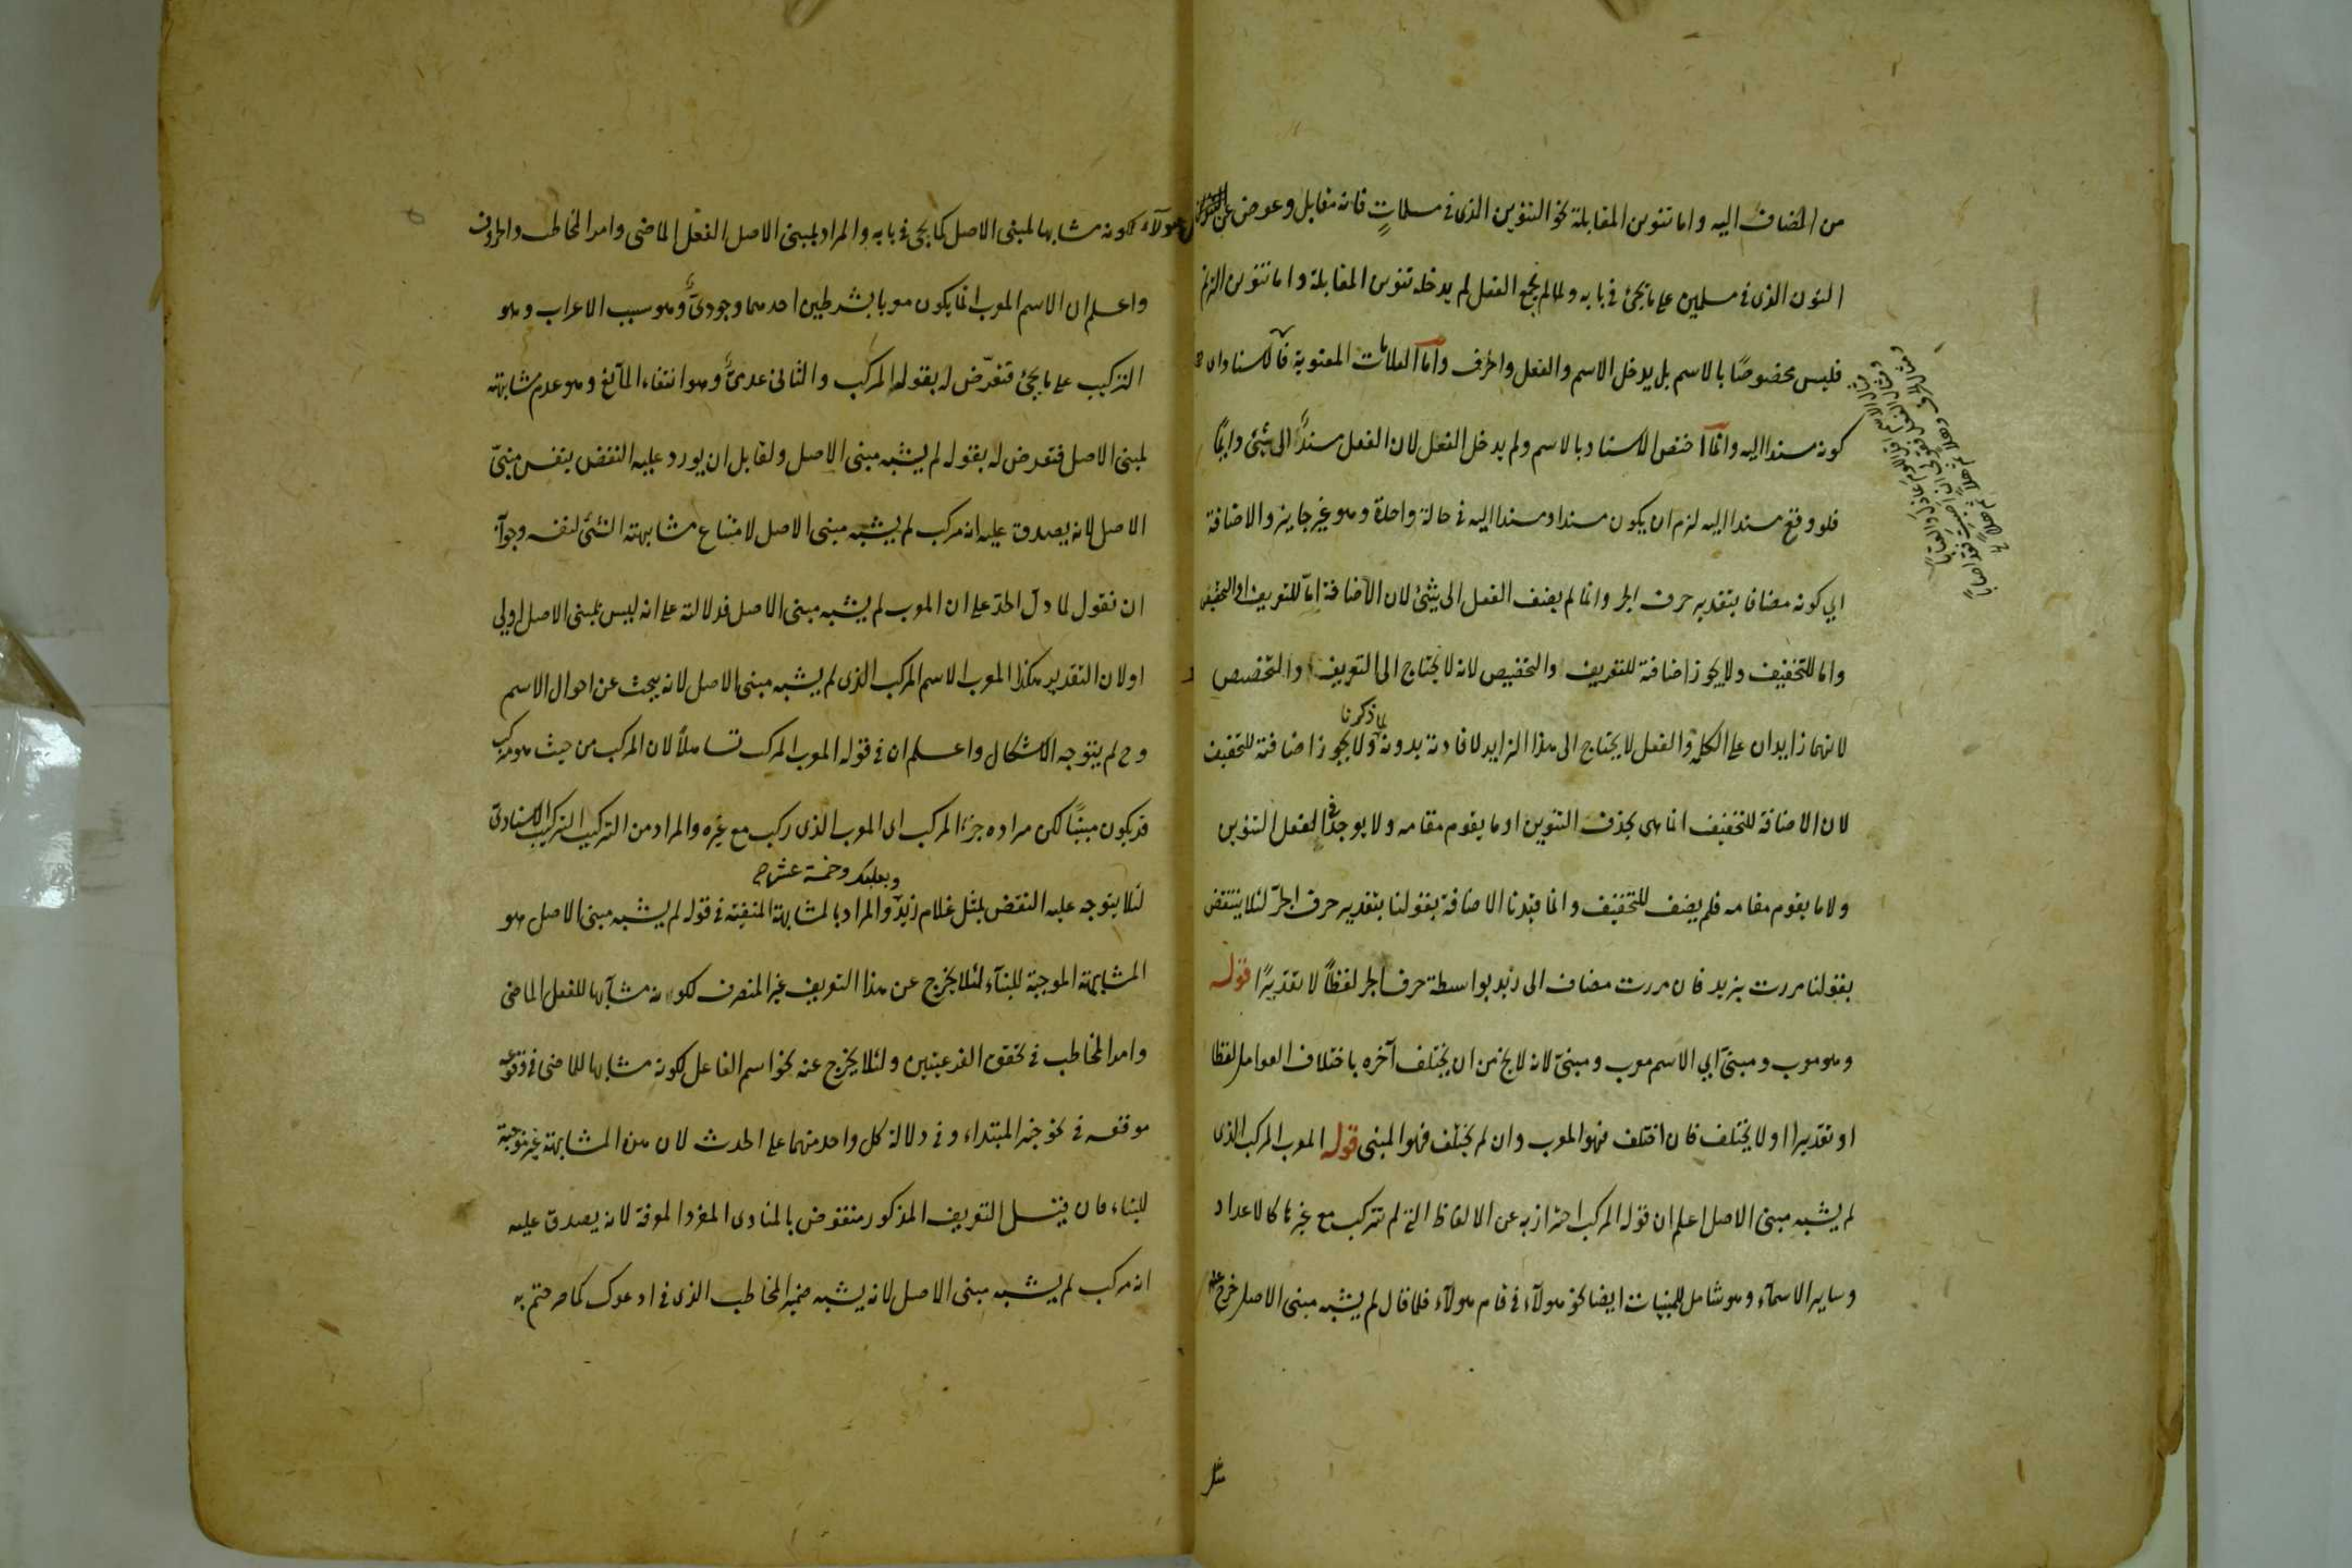 من المضاف اليه واما تنوين المقابلة نحو التنوين الذى فى مسلماتٍ فانه مقابل وعوض عن
النون الذى فى مسلمين على ما يجئ فى بابه ولما لم يجمع الفعل لم يدخله تنوين المقابلة واما تنوين الترنم
فليس مخصوصًا بالاسم بل يدخل الاسم والفعل والحرف واما العلامات المعنوية فالاسناد اى
كونه مسندا اليه وانما اختص الاسناد بالاسم ولم يدخل الفعل لان الفعل مسندٌ الى شئ دايمًا
فلو وقع مسندا اليه لزم ان يكون مسندا ومسندا اليه فى حالة واحدة وهو غير جايز والاضافة
اي كونه مضافا بتقدير حرف الجر وانما لم يضف الفعل الى شئ لان الاضافة امّا للتعريف او التخصيص
واما للتخفيف ولا يجوز اضافة للتعريف والتخصيص لانه لا يحتاج الى التعريف والتخصيص
لانهما زايدان على الكلمة والفعل لا يحتاج الى هذا الزايد لافادته بدونه لما ذكرنا ولا يجوز اضافته للتخفيف
لان الاضافة للتخفيف انما هى بحذف التنوين او ما يقوم مقامه ولا يوجد فى الفعل التنوين
ولا ما يقوم مقامه فلم يضف للتخفيف وانما قيدنا الاضافة بقولنا بتقدير حرف الجرّ لئلا ينتقض
بقولنا مررت بزيد فان مررت مضاف الى زيد بواسطة حرف الجر لفظاً لا تقديرًا قوله
وهو معرب ومبنىّ اي الاسم معرب ومبنىّ لانه لا يخ من ان يختلف آخره باختلاف العوامل لفظا
او تقديرا او لا يختلف فان اختلف فهو المعرب وان لم يختلف فهو المبنى قوله المعرب المركب الذى
لم يشبه مبنى الاصل اعلم ان قوله المركب احتراز به عن الالفاظ التى لم تتركب مع غيرها كالاعداد
وساير الاسمآء وهو شامل للمبنيات ايضا نحو هولآء فى قام هولآء فلما قال لم يشبه مبنى الاصل خرج عنه
مثل
هولآء لكونه مشابها لمبنى الاصل كما يجئ فى بابه والمراد بمبنى الاصل الفعل الماضى وامر المخاطب والحروف
واعلم ان الاسم المعرب انما يكون معربا بشرطين احدهما وجودىٌّ وهو سبب الاعراب وهو
التركيب على ما يجئ فتعرّض له بقوله المركب والثانى عدمىٌّ وهو انتفاء المانع وهو عدم مشابهته
لمبنى الاصل فتعرض له بقوله لم يشبه مبنى الاصل ولقايل ان يورد عليه النقض بنفس مبنىّ
الاصل لانه يصدق عليه انه مركب لم يشبه مبنى الاصل لامتناع مشابهة الشئ لنفسه وجوابه
ان نقول لما دلّ الحدّ على ان المعرب لم يشبه مبنى الاصل فدلالته على انه ليس بمبنى الاصل اولى
اولان التقدير هكذا المعرب الاسم المركب الذى لم يشبه مبنى الاصل لانه يبحث عن احوال الاسم
وح لم يتوجه الاشكال واعلم ان فى قوله المعرب المركب تساهلاً لان المركب من حيث هو مركب
قد يكون مبنيًا لكن مراده جزء المركب اى المعرب الذى ركب مع غيره والمراد من التركيب التركيب الاسنادى
لئلا يتوجه عليه النقض بمثل غلام زيد وبعلبك وخمسة عشر والمراد بالمشابهة المنفية فى قوله لم يشبه مبنى الاصل هو
المشابهة الموجبة للبنآء لئلا يخرج عن هذا التعريف غير المنصرف لكونه مشابها للفعل الماضى
وامر المخاطب فى تحقق الفرعيتين ولئلا يخرج عنه نحو اسم الفاعل لكونه مشابها للماضى فى وقوعه
موقعه فى نحو خبر المبتداء وفى دلالة كل واحد منهما على الحدث لان هذه المشابهة غير موجبة
للبناء فان قيل التعريف المذكور منقوض بالمنادى المفرد المعرفة لانه يصدق عليه
انه مركب لم يشبه مبنى الاصل لانه يشبه ضمير المخاطب الذى فى ادعوك كما صرحتم به